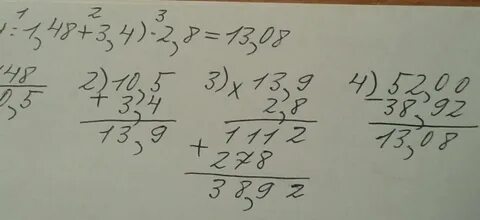 1 2 3
: 1,48 + 3,4) · 2,8 = 13,08
148 2) 10,5 3) × 13,9 4) 52,00
0,5 + 3,4 2,8 - 38,92
13,9 1112 13,08
+ 278
38,92